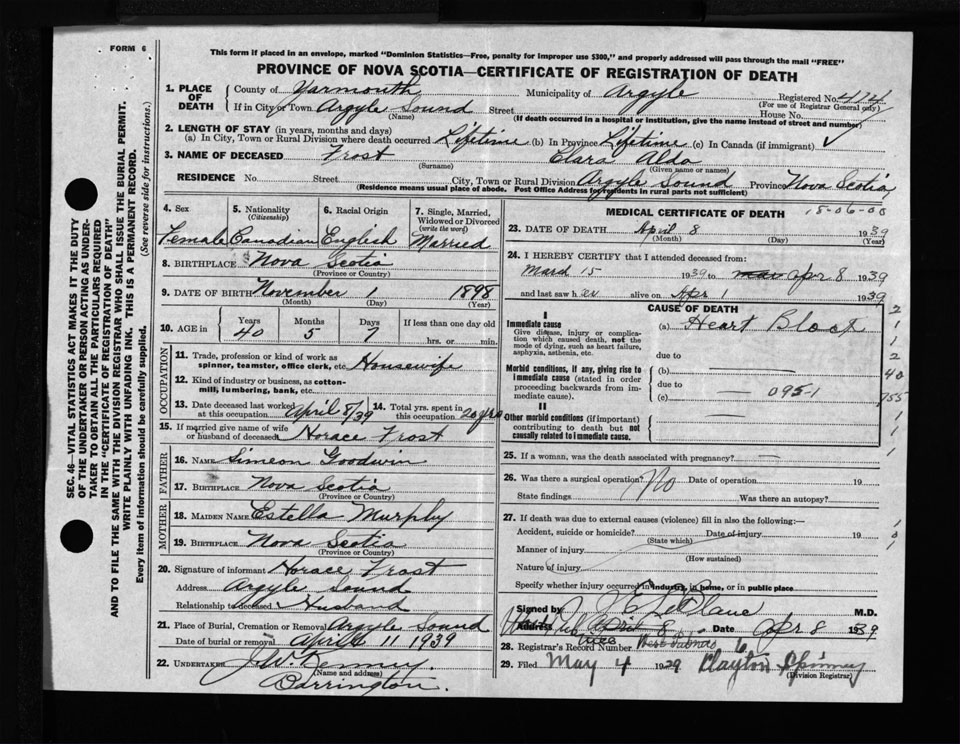 FORM 6
This form if placed in an envelope, marked "Dominion Statistics—Free, penalty for improper use $300," and properly addressed will pass through the mail "FREE"
PROVINCE OF NOVA SCOTIA—CERTIFICATE OF REGISTRATION OF DEATH
1. PLACE OF DEATH County of Yarmouth Municipality of Argyle Registered No. 414
(For use of Registrar General only)
If in City or Town Argyle Sound Street House No.
(Name) (If death occurred in a hospital or institution, give the name instead of street and number)
2. LENGTH OF STAY (in years, months and days)
(a) In City, Town or Rural Division where death occurred Lifetime (b) In Province Lifetime (c) In Canada (if immigrant)
3. NAME OF DECEASED Frost Clara Alda
(Surname) (Given name or names)
RESIDENCE No. Street City, Town or Rural Division Argyle Sound Province Nova Scotia
(Residence means usual place of abode. Post Office Address for residents in rural parts not sufficient)
4. Sex 5. Nationality (Citizenship) 6. Racial Origin 7. Single, Married, Widowed or Divorced (write the word)
Female Canadian English Married
8. BIRTHPLACE Nova Scotia
(Province or Country)
9. DATE OF BIRTH November 1 1898
(Month) (Day) (Year)
10. AGE in Years Months Days If less than one day old
40 5 7 hrs. or min.
OCCUPATION
11. Trade, profession or kind of work as spinner, teamster, office clerk, etc. Housewife
12. Kind of industry or business, as cotton-mill, lumbering, bank, etc.
13. Date deceased last worked at this occupation April 8/39 14. Total yrs. spent in this occupation 20 yrs
15. If married give name of wife or husband of deceased Horace Frost
FATHER
16. NAME Simeon Goodwin
17. BIRTHPLACE Nova Scotia
(Province or Country)
MOTHER
18. MAIDEN NAME Estella Murphy
19. BIRTHPLACE Nova Scotia
(Province or Country)
20. Signature of informant Horace Frost
Address Argyle Sound
Relationship to deceased Husband
21. Place of Burial, Cremation or Removal Argyle Sound
Date of burial or removal April 11 1939
22. UNDERTAKER J. W. Kenney
(Name and address)
Barrington.
MEDICAL CERTIFICATE OF DEATH 15-06-00
23. DATE OF DEATH April 8 1939
(Month) (Day) (Year)
24. I HEREBY CERTIFY that I attended deceased from:
March 15 1939 to Apr 8 1939
and last saw her alive on Apr 1 1939
CAUSE OF DEATH
I
Immediate cause (a) Heart Block
Give disease, injury or complication which caused death, not the mode of dying, such as heart failure, asphyxia, asthenia, etc.
due to
Morbid conditions, if any, giving rise to immediate cause (stated in order proceeding backwards from immediate cause). (b)
due to
(c) 095-1
II
Other morbid conditions (if important) contributing to death but not causally related to immediate cause.
25. If a woman, was the death associated with pregnancy?
26. Was there a surgical operation? No Date of operation 19
State findings Was there an autopsy?
27. If death was due to external causes (violence) fill in also the following:—
Accident, suicide or homicide? Date of injury 19
(State which)
Manner of injury
(How sustained)
Nature of injury
Specify whether injury occurred in industry, in home, or in public place
Signed by M.D.
Address Date Apr 8 1939
28. Registrar's Record Number
29. Filed May 4 1939 Clayton Spinney
(Division Registrar)
SEC. 46—VITAL STATISTICS ACT MAKES IT THE DUTY
OF THE UNDERTAKER OR PERSON ACTING AS UNDER-
TAKER TO OBTAIN ALL THE PARTICULARS REQUIRED
IN THE "CERTIFICATE OF REGISTRATION OF DEATH"
AND TO FILE THE SAME WITH THE DIVISION REGISTRAR WHO SHALL ISSUE THE BURIAL PERMIT.
WRITE PLAINLY WITH UNFADING INK. THIS IS A PERMANENT RECORD.
Every item of information should be carefully supplied. (See reverse side for instructions.)